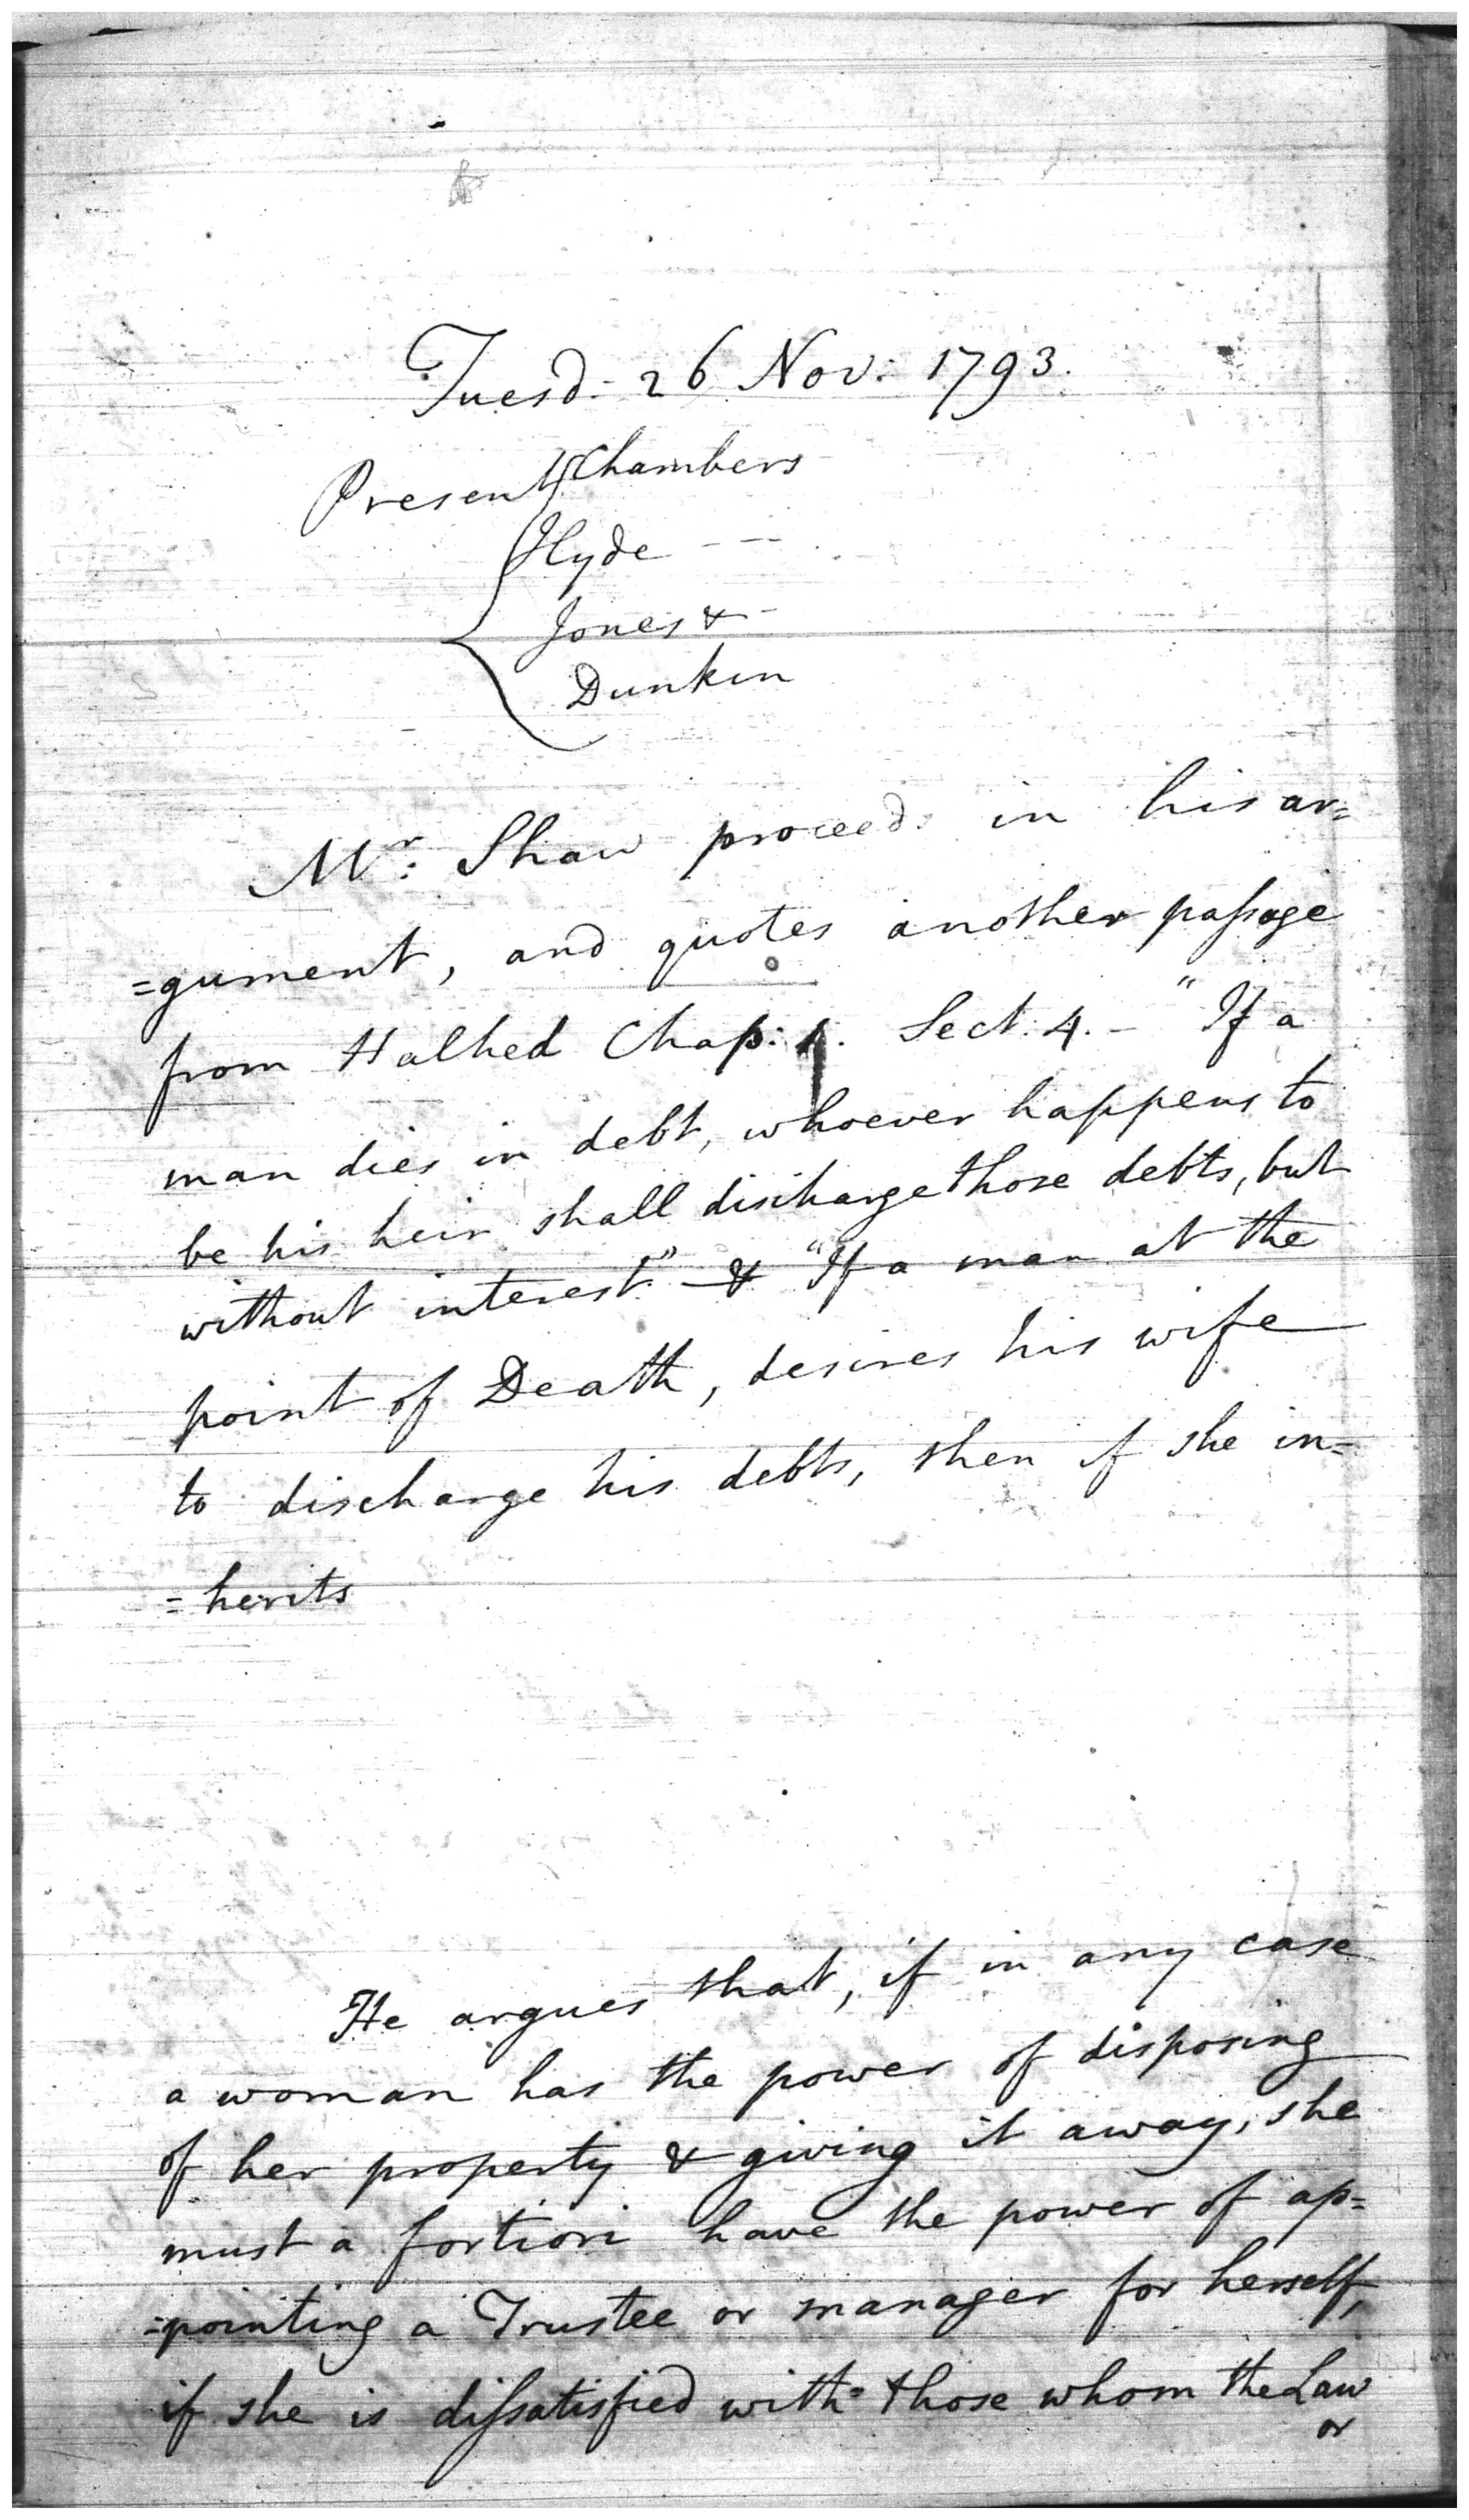 Tuesd: 26 Nov: 1793.
Present Chambers
Hyde - -
Jones & -
Dunkin
Mr: Shaw proceeds in his ar=
=gument, and quotes another paſsage
from Halhed Chap: 1. Sect: 4. - "If a
man dies in debt, whoever happens to
be his heir shall discharge those debts, but
without interest" - & "If a man at the
point of Death, desires his wife
to discharge his debts, then if she in=
=herits
He argues that, if in any case
a woman has the power of disposing
of her property & giving it away, she
must a fortiori have the power of ap=
=pointing a Trustee or manager for herself,
if she is diſsatisfied with those whom the Law
or